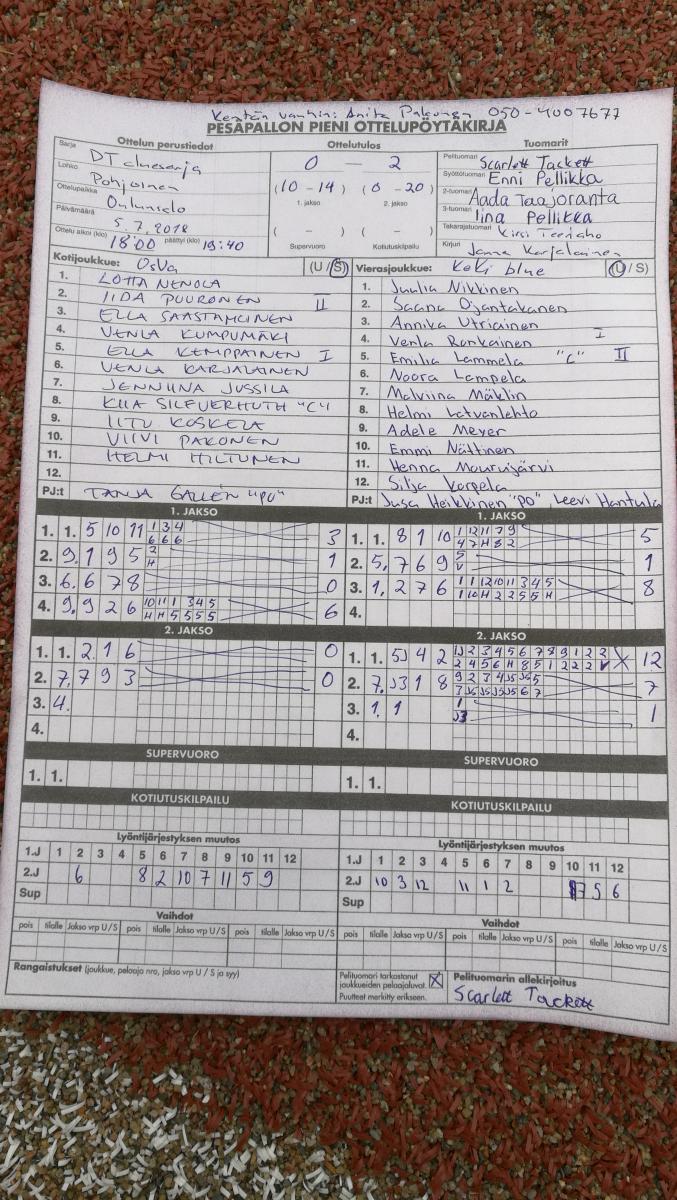 Kentän vanhin: Anita Pakonen 050-4007677
PESÄPALLON PIENI OTTELUPÖYTÄKIRJA
Ottelun perustiedot
Sarja DT aluesarja
Lohko Pohjoinen
Ottelupaikka Oulunsalo
Päivämäärä 5.7.2018
Ottelu alkoi (klo) 18:00 päättyi (klo) 19:40
Ottelutulos
0 – 2
(10 – 14) (0 – 20)
1. jakso 2. jakso
( – ) ( – )
Supervuoro Kotiutuskilpailu
Tuomarit
Pelituomari Scarlett Tackett
Syöttötuomari Enni Pellikka
2-tuomari Aada Taajoranta
3-tuomari Iina Pellikka
Takarajatuomari Kirsi
Kirjuri Janna Karjalainen
Kotijoukkue: OsVa (U/S)
1. LOTTA NENOLA
2. IIDA PUURONEN II
3. ELLA SAASTAMOINEN
4. VENLA KUMPUMÄKI
5. ELLA KEMPPAINEN I
6. VENLA KARJALAINEN
7. JENNIINA JUSSILA
8. KIIA SILFVERHUTH "C"
9. IITU KOSKELA
10. VIIVI PAKONEN
11. HELMI HILTUNEN
12.
PJ:t TANJA GALLÉN "PO"
Vierasjoukkue: KeKi blue (U/S)
1. Juulia Nikkinen
2. Saana Ojantakanen
3. Annika Utriainen
4. Venla Ronkainen I
5. Emilia Lammela "C" II
6. Noora Lampela
7. Malviina Mäklin
8. Helmi Latvanlehto
9. Adele Meyer
10. Emmi Nättinen
11. Henna Mourujärvi
12. Silja Korpela
PJ:t Jusa Heikkinen "PO", Leevi Hantula
1. JAKSO
1. 1. 5 10 11 1 3 4 3
6 6 6
2. 9. 1 9 5 2 1
H
3. 6. 6 7 8 0
4. 9. 9 2 6 10 11 1 3 4 5 6
H H 5 5 5 5
2. JAKSO
1. 1. 2 1 6 0
2. 7. 7 9 3 0
3. 4.
4.
SUPERVUORO
1. 1.
KOTIUTUSKILPAILU
Lyöntijärjestyksen muutos
1.J 1 2 3 4 5 6 7 8 9 10 11 12
2.J 6 8 2 10 7 11 5 9
Sup
Vaihdot
pois tilalle Jakso vrp U/S pois tilalle Jakso vrp U/S
Rangaistukset (joukkue, pelaaja nro, jakso vrp U / S ja syy)
1. JAKSO
1. 1. 8 1 10 1 12 11 7 9 5
4 7 H 8 2
2. 5. 7 6 9 5 1
V
3. 1. 2 7 6 1 11 12 10 11 3 4 5 8
1 10 H 2 2 5 5 H
4.
2. JAKSO
1. 1. 5J 4 2 12
2. 7. J3 1 8 7
3. 1. 1 1 1
J3
4.
SUPERVUORO
1. 1.
KOTIUTUSKILPAILU
Lyöntijärjestyksen muutos
1.J 1 2 3 4 5 6 7 8 9 10 11 12
2.J 10 3 12 11 1 2 7 5 6
Sup
Vaihdot
pois tilalle Jakso vrp U/S pois tilalle Jakso vrp U/S
Pelituomari tarkastanut joukkueiden pelaajaluvat. X
Puutteet merkitty erikseen.
Pelituomarin allekirjoitus
Scarlett Tackett